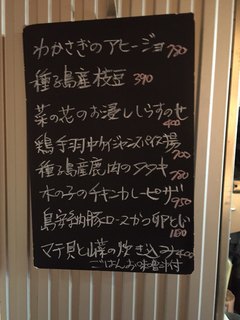 わかさぎのアヒージョ 780
種子島産枝豆 390
菜の花のお浸ししらすのせ
400
鶏手羽中ケイジャンスパイス揚
700
種子島産鹿肉のタタキ
780
木の子のチキンカレーピザ
950
島安納豚ロースかつ卵とじ
マテ貝と山菜の炊き込み 400
ごはんお味噌汁付